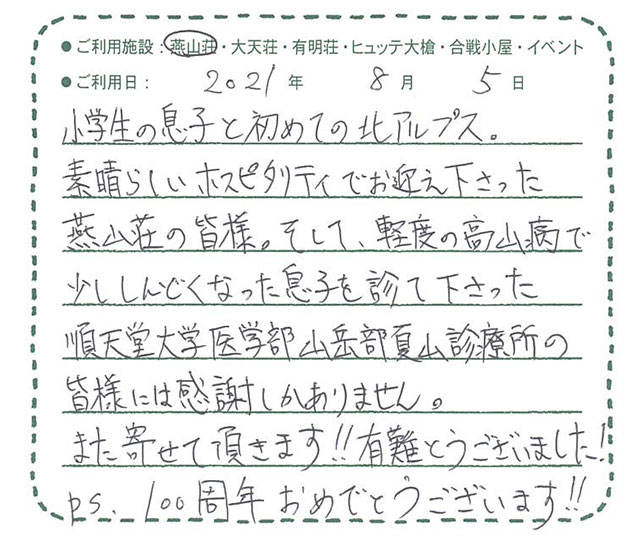 ●ご利用施設：燕山荘・大天荘・有明荘・ヒュッテ大槍・合戦小屋・イベント
●ご利用日： 2021年 8月 5日
小学生の息子と初めての北アルプス。
素晴らしいホスピタリティでお迎え下さった
燕山荘の皆様。そして、軽度の高山病で
少ししんどくなった息子を診て下さった
順天堂大学医学部山岳部夏山診療所の
皆様には感謝しかありません。
また寄せて頂きます!!有難とうございました!
ps. 100周年おめでとうございます!!